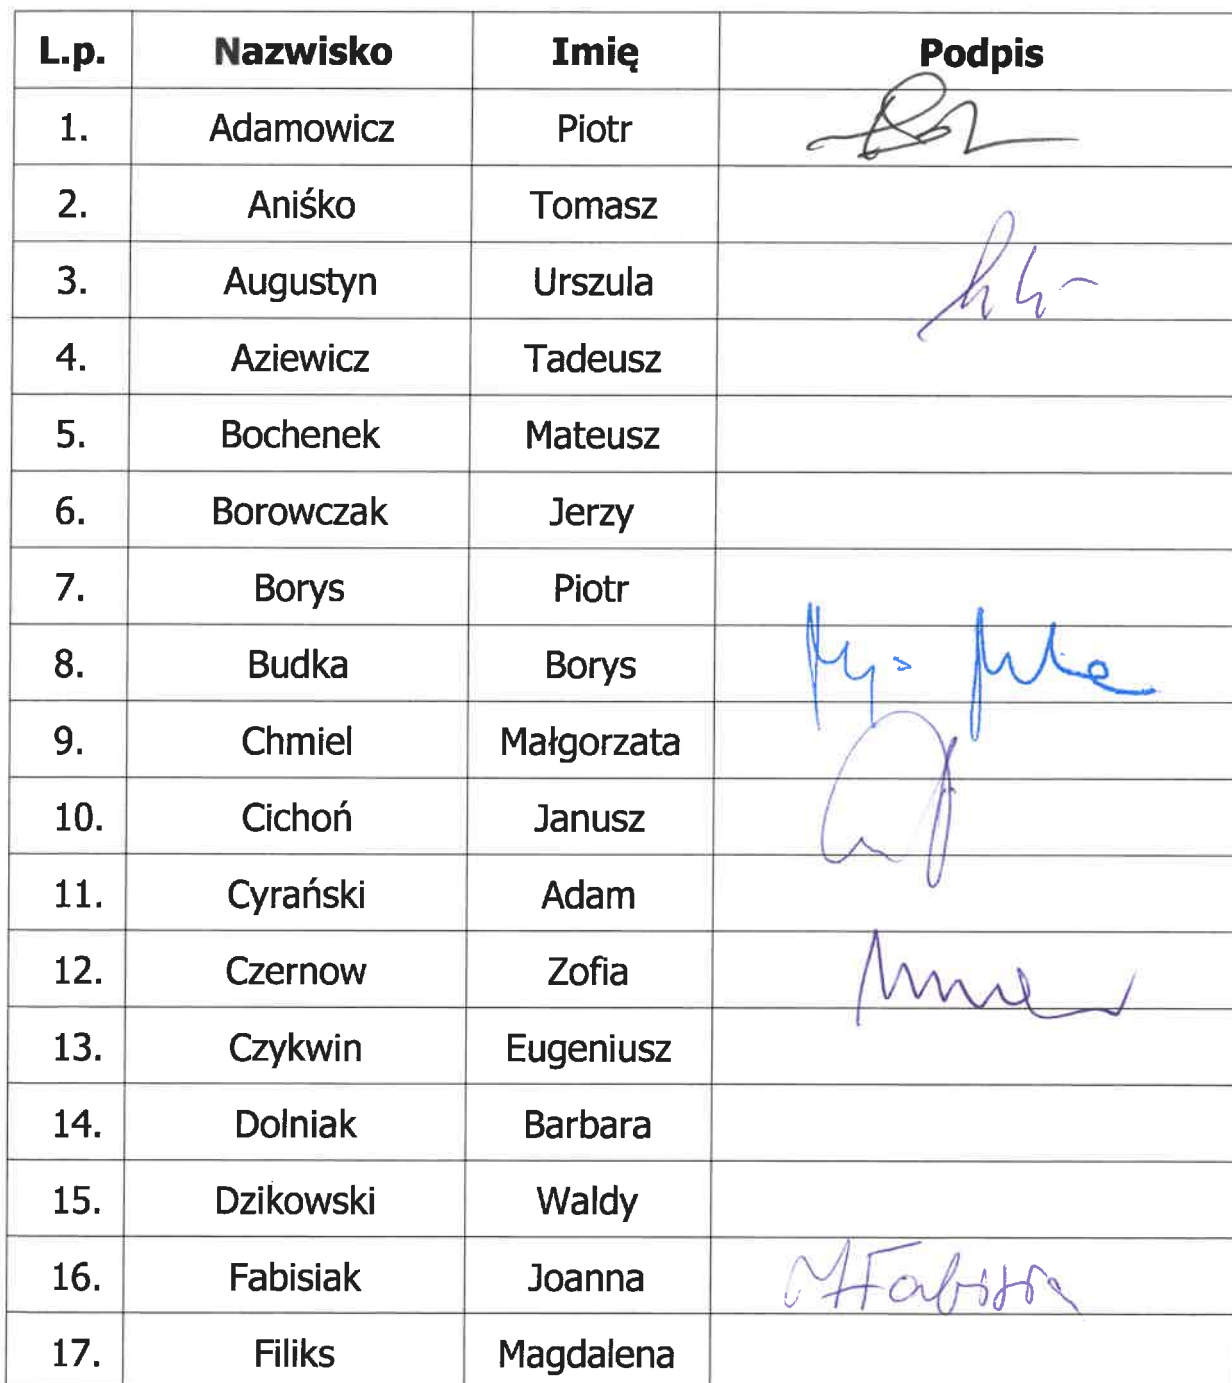 L.p. Nazwisko Imię Podpis
1. Adamowicz Piotr
2. Aniśko Tomasz
3. Augustyn Urszula
4. Aziewicz Tadeusz
5. Bochenek Mateusz
6. Borowczak Jerzy
7. Borys Piotr
8. Budka Borys
9. Chmiel Małgorzata
10. Cichoń Janusz
11. Cyrański Adam
12. Czernow Zofia
13. Czykwin Eugeniusz
14. Dolniak Barbara
15. Dzikowski Waldy
16. Fabisiak Joanna
17. Filiks Magdalena